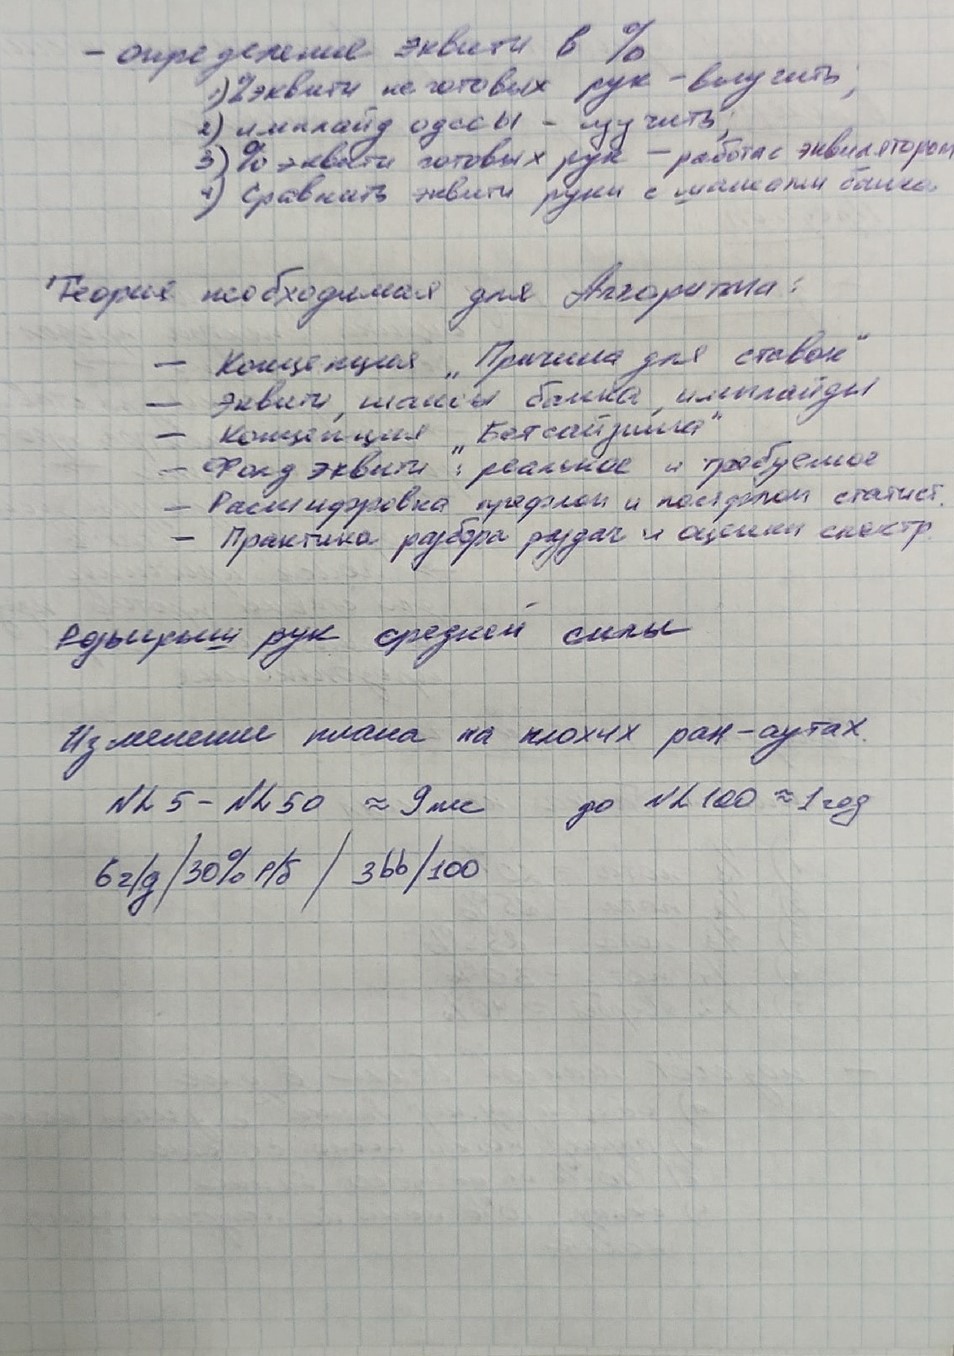 - определение эквити в %
1) % эквити не готовых рук - выучить;
2) имплайд оддсы - изучить;
3) % эквити готовых рук - работа с эквилятором
4) Сравнить эквити руки с шансами банка
Теория необходимая для Алгоритма:
- Концепция "Причина для ставок"
- Эквити, шансы банка, имплайды
- Концепция "Бетсайзинга"
- Фолд эквити: реальное и требуемое
- Расшифровка префлоп и постфлоп статист.
- Практика разбора раздач и оценки спектр.
Розыгрыш рук средней силы
Изменение плана на плохих ран-аутах.
NL5 - NL50 ≈ 9 мес до NL100 ≈ 1 год
6 ч/д / 30% р/б / 3bb/100